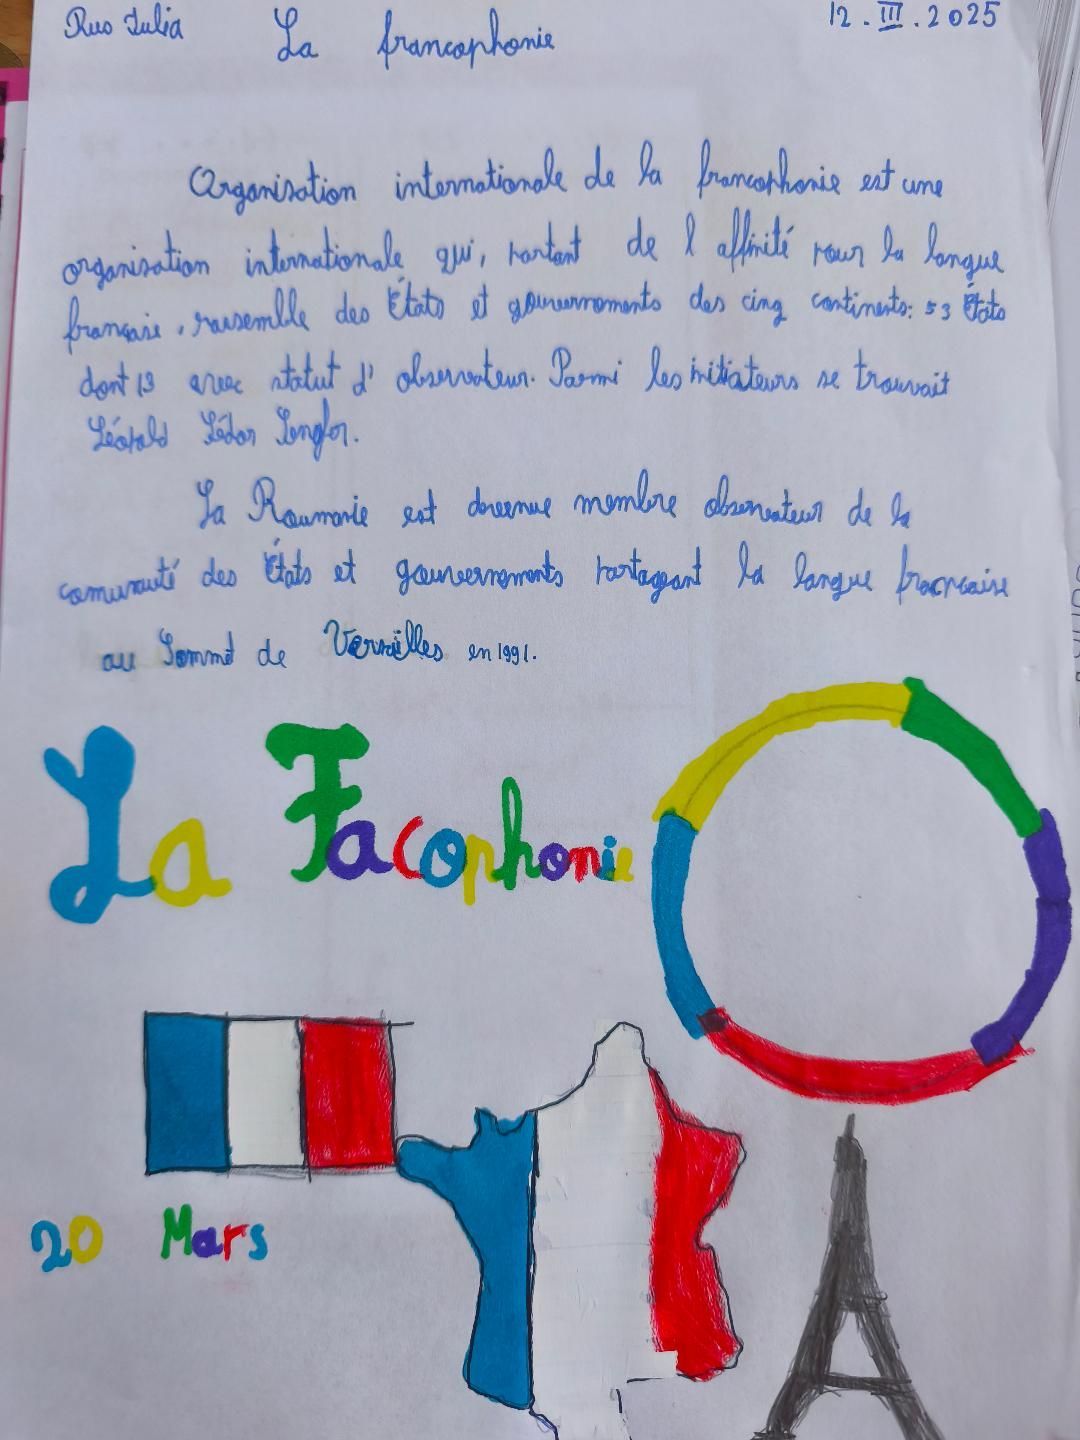 Rus Iulia La francophonie 12.III.2025
Organisation internationale de la francophonie est une
organisation internationale qui, partant de l affinité pour la langue
française, rassemble des États et gouvernements des cinq continents: 53 États
dont 13 avec statut d' observateur. Parmi les initiateurs se trouvait
Léopold Sédar Senghor.
La Roumanie est devenue membre observateur de la
comunauté des États et gouvernements partageant la langue francaise
au Sommet de Versailles en 1991.
La Facophonie
20 Mars